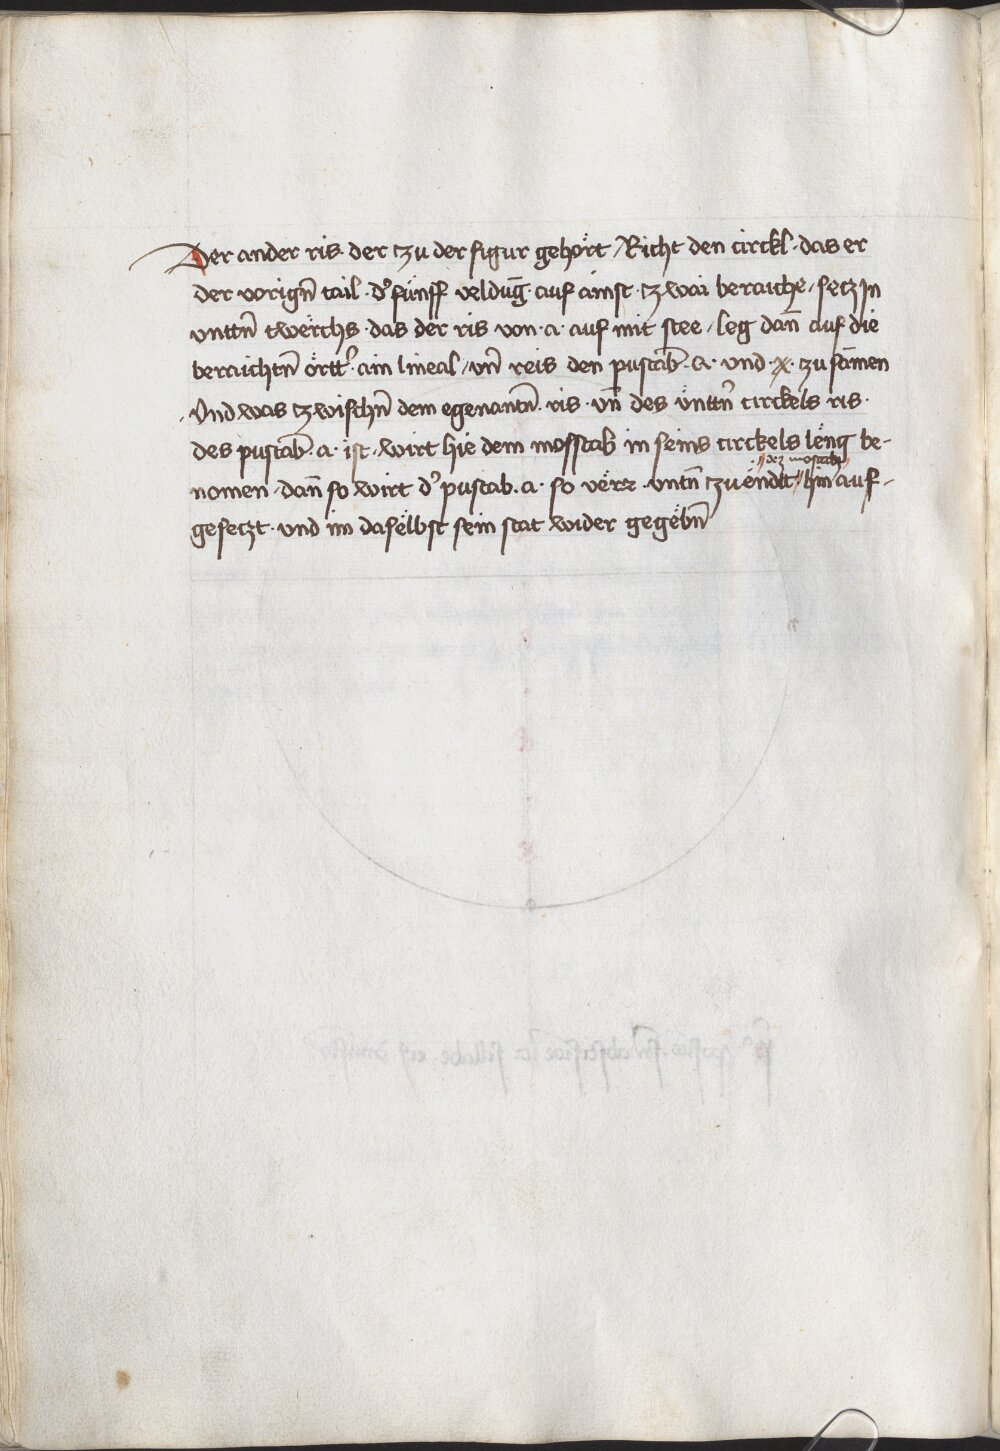 Der ander ris· der tzu der figur gehört / Richt den circkl · das er
der vorign̄ tail · d' fünff veldūg auf ainst · tzwai beraiche / setz In
vnttn̄ twerchs · das der ris von · a · auf mit stee / leg dan̄ auf die
beraichtn̄ örtt' · ain lineal / vn̄ reis den pustab · a · vnd · x · zu sāmen
/ Vnd was tzwischn̄ dem egenantn̄ · ris · vn̄ des vnttn̄ circkels ris ·
des pustab · a · ist / wirt hie dem mosstab in seins circkels leng be-
nomen / dan̄ so wirt d' pustab · a · so verr · vntn̄ tzu endt // dez mostabs // hin auf-
gesetzt · vnd im daselbst sein stat wider gegebn̄